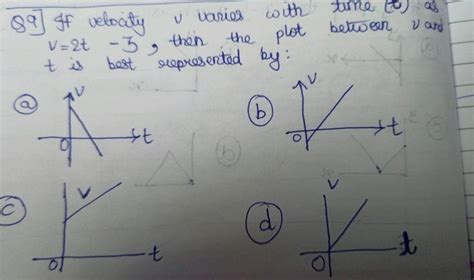 Q9] If velocity v varies with time (t) as
v = 2t - 3, then the plot between v and
t is best represented by:
(a) v 0 t
(b) v 0 t
(c) v 0 t
(d) v 0 t